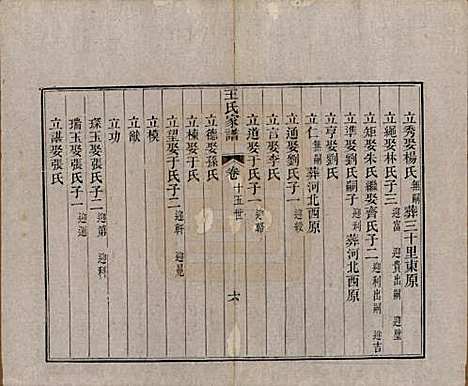 立秀娶楊氏無嗣葬三十里東原
立繩娶林氏子三迎富 迎貴出嗣 迎璧
立矩娶朱氏繼娶齊氏子二迎利出嗣 迎吉
立準娶劉氏嗣子迎利葬河北西原
立亨娶劉氏
立仁無嗣葬河北西原
立通娶劉氏子一迎毅
立言娶李氏
立道娶于氏子一迎聯
王氏家譜 卷 十五世 六
立德娶孫氏
立棟娶于氏
立望娶于氏子二迎軒 迎冕
立模
立猷
立功
琛玉娶張氏子二迎第 迎科
瑞玉娶張氏子一迎運
立諶娶張氏